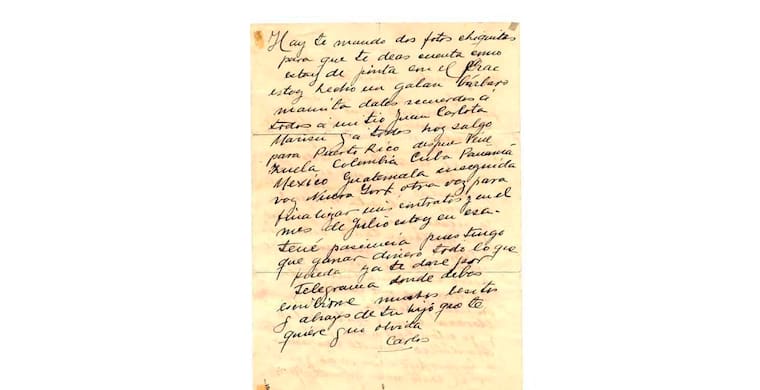 Hay te mando dos fotos chiquitas
para que te deas cuenta como
estoy de pinta con el frac
estoy hecho un galan bárbaro
mamita dales recuerdos á
todos á mi tio Juan Carlota
y a todos hoy salgo
para Puerto Rico despue Vene
zuela Colombia Cuba Panamá
Mexico Guatemala enseguida
voy Nueva York otra vez para
finalizar mis contratos y en el
mes de Julio estoy en esa-
tené pasiencia pues tengo
que ganar dinero todo lo que
pueda ya te daré por
Telegrama donde debes
escribirme muchos besitos
y abrazos de tu hijo que te
quiere y no olvida
Carlos